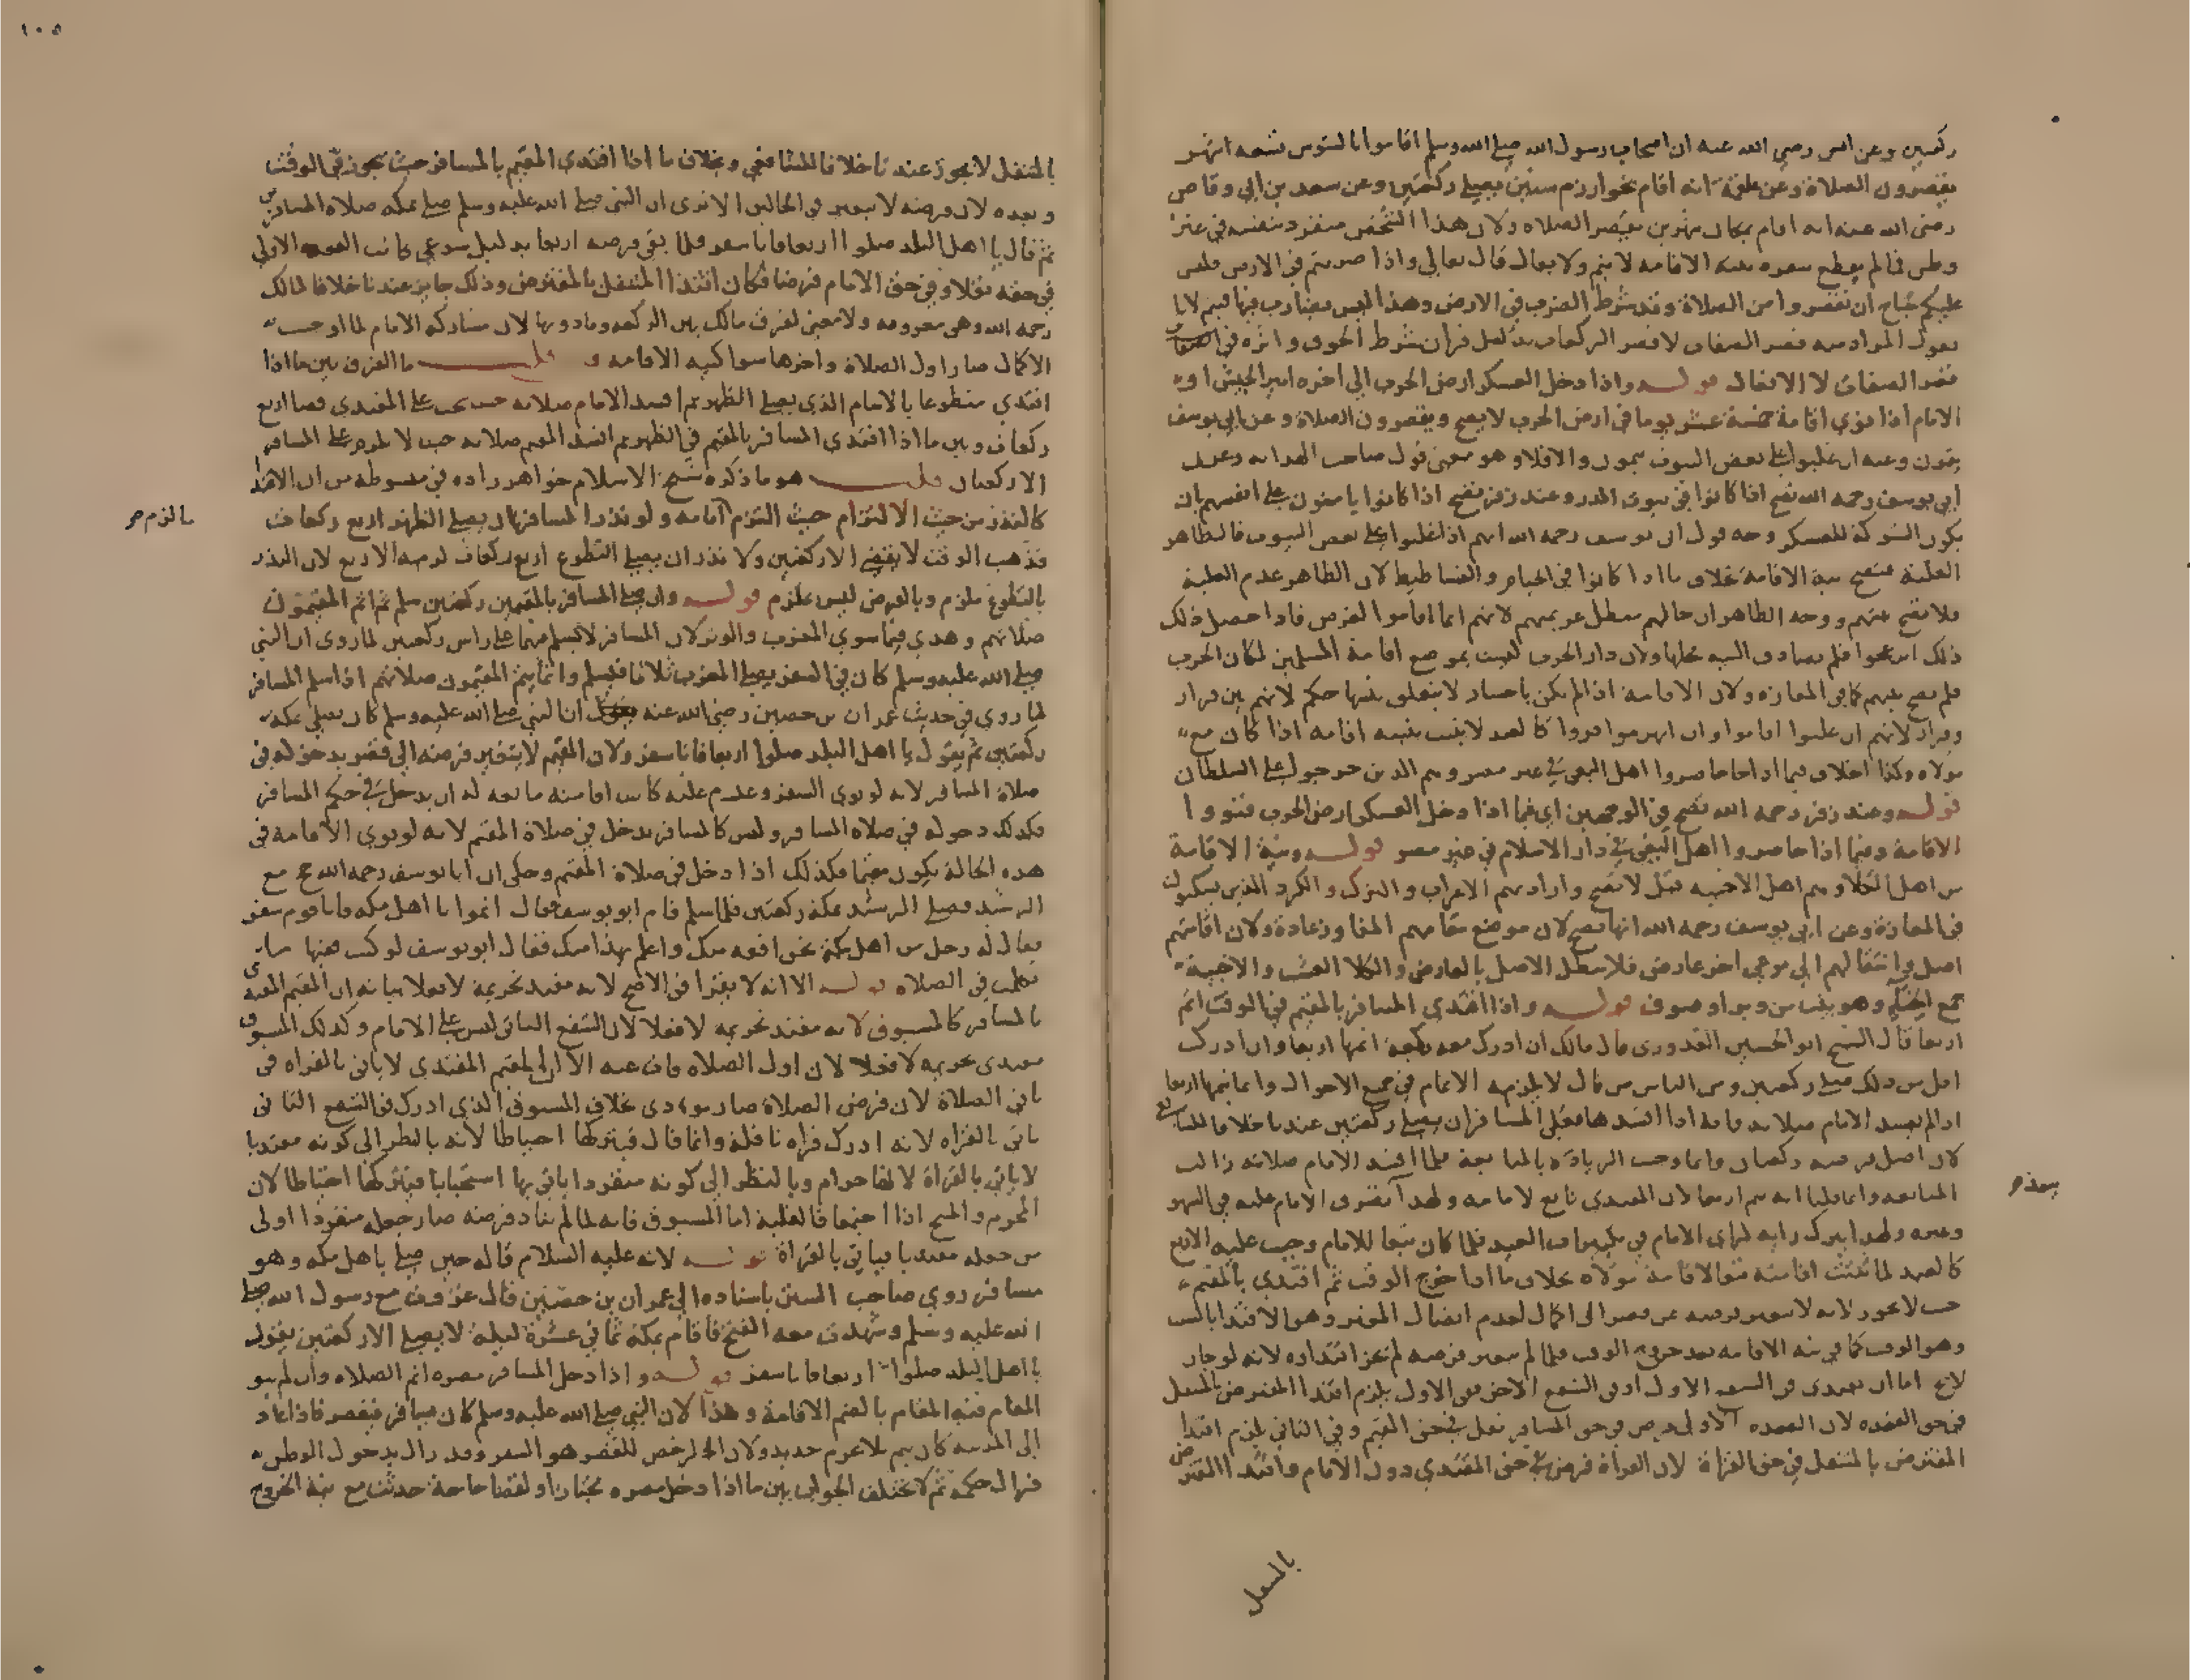 ركعتين وعن انس رضي الله عنه ان اصحاب رسول الله صلى الله وسلم اقاموا بالسوس تسعة اشهر
يقصرون الصلاة وعن علقمة انه اقام بخوارزم سنتين يصلي ركعتين وعن سعد بن ابي وقاص
رضي الله عنه انه اقام شهرين يقصر الصلاة ولان هذا الشخص منفرد بنفسه في غير
وطن فما لم يقطع سفره بنية الاقامة لا يتم ولا يقال قال تعالى واذا ضربتم في الارض فليس
عليكم جناح ان تقصروا من الصلاة وقد شرط الضرب في الارض وهذا ليس بضارب فيها فيتم لانا
نقول المراد منه قصر الصفات لا قصر الركعات بدليل قران شرط الخوف واثره في
قصر الصفات لا الافعال قوله واذا دخل العسكر ارض الحرب الى اخره امير الجيش او
الامام اذا نوى اقامة خمسة عشر يوما في ارض الحرب لا يصح ويقصرون الصلاة وعن ابي يوسف
يتمون وعنه ان غلبوا على بعض البيوت يتمون والا فلا وهو معنى قول صاحب الهداية وعند
ابي يوسف رحمه الله تصح اذا كانوا في بيوت المدر وعند زفر تصح اذا كانوا يامنون على انفسهم بان
يكون الشوكة للعسكر وجه قول ابي يوسف رحمه الله انهم اذا غلبوا على بعض البيوت فالظاهر
الغلبة فتصح نية الاقامة بخلاف ما اذا كانوا في الخيام والفساطيط لان الظاهر عدم الغلبة
فلا تصح عنهم ووجه الظاهر ان حالهم يبطل عزيمتهم لانهم انما اقاموا لغرض فاذا حصل ذلك
ذلك انزعجوا فلم يصادف النية محلها ولان دار الحرب ليست بموضع اقامة المسلمين لمكان الحرب
فلم تصح نيتهم كما في المفازة ولان الاقامة اذا لم يكن لا يتعلق بنيتها حكم لانهم بين قرار
وفرار لانهم ان غلبوا اقاموا وان انهزموا فروا كالعبد لا يثبت بنيته اقامة اذا كان مع
مولاه وكذا الخلاف فيما اذا حاصروا اهل البغي في غير مصر وهم الذين خرجوا على السلطان
قوله وعند زفر رحمه الله تصح في الوجهين اي فيما اذا دخل العسكر ارض الحرب فنووا
الاقامة وفيما اذا حاصروا اهل البغي في دار الاسلام في غير مصر قوله ونية الاقامة
من اهل الكلاء وهم اهل الاخبية قيل لا تصح واراد بهم الاعراب والترك والكرد الذين يسكنون
في المفازة وعن ابي يوسف رحمه الله انها تصح لان موضع مقامهم المفاوز عادة ولان اقامتهم
اصل وانتقالهم الى مرعى اخر عارض فلا يبطل الاصل بالعارض والكلا العشب والاخبية
جمع الخباء وهو بيت من وبر او صوف قوله واذا اقتدى المسافر بالمقيم في الوقت اتم
اربعا قال الشيخ ابو الحسين القدوري قال مالك ان ادرك معه ركعة اتمها اربعا وان ادرك
اقل من ذلك صلى ركعتين ومن الناس من قال لا يلزمه الاتمام في جميع الاحوال وانما يتمها اربعا
اذا لم يفسد الامام صلاته فانه اذا افسدها فعلى المسافر ان يصلي ركعتين عندنا خلافا للشافعي
لان اصل فرضه ركعتان وانما وجب الزيادة بالمتابعة فلما افسد الامام صلاته زالت
المتابعة وانما قلنا انه يتم اربعا لان المقتدي تابع لامامه ولهذا يتقرى الامام عليه في السهو
وغيره ولهذا يترك رايه لراى الامام في تكبيرات العيد فلما كان تبعا للامام وجب عليه الاربع
كالعبد لما تثبت اقامته تبعا لاقامة مولاه بخلاف ما اذا خرج الوقت ثم اقتدى بالمقيم
حيث لا يجوز لانه لا يتغير فرضه من قصر الى اكمال لعدم اتصال المغير وهو الاقتدا بالسبب
وهو الوقت كما في نية الاقامة بعد خروج الوقت فلما لم يتغير فرضه لم يجز اقتداوه لانه لو جاز
لا يخ اما ان يقتدي في الشفع الاول او في الشفع الاخر ففي الاول يلزم اقتدا المفترض بالمتنفل
في حق القعدة لان القعدة الاولى فرض في حق المسافر نفل في حق المقيم وفي الثاني يلزم اقتدا
المفترض بالمتنفل في حق القراة لان القراة فرض في حق المقتدي دون الامام واقتدا المفترض
يعد صح
بالمتنفل
١٠٥
بالمتنفل لا يجوز عندنا خلافا للشافعي وبخلاف ما اذا اقتدى المقيم بالمسافر حيث يجوز في الوقت
وبعده لان فرضه لا يتغير في الحالين الا ترى ان النبي صلى الله عليه وسلم صلى بمكة صلاة المسافرين
ثم قال يا اهل البلد صلوا اربعا فانا سفر فلما بقي فرضه اربعا بدليل شرعي كانت القعدة الاولى
في حقه نفلا وفي حق الامام فرضا فكان اقتدا المتنفل بالمفترض وذلك جايز عندنا خلافا لمالك
رحمه الله وهي معروفة ولا معنى لفرق مالك بين الركعة وما دونها لان مشاركة الامام لما اوجبت
الاكمال صار اول الصلاة واخرها سوا كنية الاقامة و قلت ما الفرق بين ما اذا
اقتدى متطوعا بالامام الذي يصلي الظهر ثم افسد الامام صلاته حيث يجب على المقتدي قضا اربع
ركعات وبين ما اذا اقتدى المسافر بالمقيم في الظهر ثم افسد المقيم صلاته حيث لا يلزم على المسافر
الا ركعتان قلت هو ما ذكره شيخ الاسلام خواهر زاده في مبسوطه من ان الاقتدا
كالنذر من حيث الالتزام حيث التزم امامه ولو نذر المسافر ان يصلي الظهر اربع ركعات
فذهب الوقت لا يقضي الا ركعتين ولا نذر ان يصلي التطوع اربع ركعات لزمه الاربع لان النذر
بالتطوع ملزم وبالفرض ليس بملزم قوله وان صلى المسافر بالمقيمين ركعتين سلم ثم اتم المقيمون
صلاتهم وهذي فيما سوى المغرب والوتر لان المسافر لا يسلم فيهما على راس ركعتين لما روى ان النبي
صلى الله عليه وسلم كان في السفر يصلي المغرب ثلاثا فيسلم وانما يتم المقيمون صلاتهم اذا سلم المسافر
لما روي في حديث عمران بن حصين رضي الله عنه ان النبي صلى الله عليه وسلم كان يصلي بمكة
ركعتين ثم يقول يا اهل البلد صلوا اربعا فانا سفر ولان المقيم لا يتغير فرضه الى قصر بدخوله في
صلاة المسافر لانه لو نوى السفر وعزم عليه كانت اقامته مانعة له ان يدخل في حكم المسافر
فكذلك دخوله في صلاة المسافر وليس كالمسافر يدخل في صلاة المقيم لانه لو نوى الاقامة في
هذه الحالة يكون مقيما فكذلك اذا دخل في صلاة المقيم وحكى ان ابا يوسف رحمه الله حج مع
الرشيد فصلى الرشيد بمكة ركعتين فلما سلم قام ابو يوسف فقال اتموا يا اهل مكة فانا قوم سفر
فقال له رجل من اهل مكة نحن افقه منك واعلم بهذا منك فقال ابو يوسف لو كنت فقيها ما
تكلمت في الصلاة قوله الا انه لا يقرا في الاصح لانه مقتد تحريمة لا فعلا بيانه ان المقيم المقتدي
بالمسافر كالمسبوق لانه مقتد تحريمه لا فعلا لان الشفع الثاني ليس على الامام وكذلك المسبوق
مقتدي تحريمه لا فعلا لان اول الصلاة فات عنه الا ان المقيم المقتدي لا ياتي بالقراه في
باقي الصلاة لان فرض الصلاة صار مودى بخلاف المسبوق الذي ادرك في الشفع الثاني
ياتي بالقراه لانه ادرك قراه نافلة وانما قال فيتركها احتياطا لانه بالنظر الى كونه مقتديا
لا ياتي بالقراة لانها حرام وبالنظر الى كونه منفردا ياتي بها استحبابا فيتركها احتياطا لان
المحرم والمبيح اذا اجتمعا فالغلبة اما المسبوق فانه لما لم يتاد فرضه صار جعله منفردا اولى
من جعله مقتديا فياتي بالقراة قوله لانه عليه السلام قاله حين صلى باهل مكة وهو
مسافر روي صاحب السنن باسناده الى عمران بن حصين قال غزوت مع رسول الله صلى
الله عليه وسلم وشهدت معه الفتح فاقام بمكة ثماني عشرة ليلة لا يصلي الا ركعتين يقول
يا اهل البلد صلوا اربعا فانا سفر قوله واذا دخل المسافر مصره اتم الصلاة وان لم ينو
المقام فيه المقام بالضم الاقامة وهذا لان النبي صلى الله عليه وسلم كان يسافر فيقصر فاذا عاد
الى المدينة كان يتم بلا عزم جديد ولان المرخص للقصر هو السفر وقد زال بدخول الوطن
فزال حكمه ثم لا يختلف الجواب بين ما اذا دخل مصره مختارا او لقضا حاجة حدثت مع نية الخروج
ما لزم صح